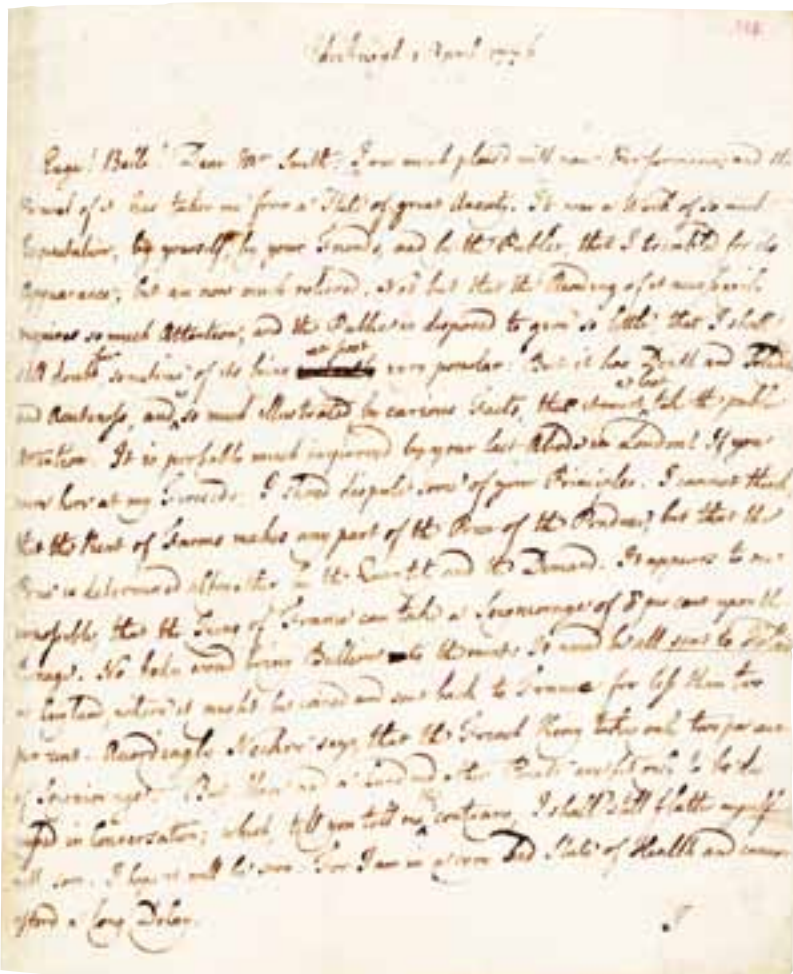 Edinburgh 1 April 1776
Euge! Belle! Dear Mr Smith: I am much pleas'd with your Performance, and the
Perusal of it has taken me from a State of great Anxiety. It was a Work of so much
Expectation, by yourself, by your Friends, and by the Public, that I trembled for its
Appearance; but am now much relieved. Not but that the Reading of it necessarily
requires so much Attention, and the Public is disposed to give so little that I shall
still doubt for some time of its being at first very popular: But it has Depth and Solidity
and Acuteness, and is so much illustrated by curious Facts, that it must at last take the public
Attention. It is probably much improved by your last Abode in London. If you
were here at my Fireside, I should dispute some of your Principles. I cannot think,
that the Rent of Farms makes any part of the Price of the Produce, but that the
Price is determined altogether by the Quantity and the Demand. It appears to me
impossible, that the King of France can take a Seigniorage of 8 per cent upon the
Coinage. No body would bring Bullion to the mint: It would be all sent to Holland
or England, where it might be coined and sent back to France for less than two
per cent. Accordingly Neckre says, that the French King takes only two per cent
of Seigniorage. But these and a hundred other Points are fit only to be dis
cussed in Conversation; which, till you tell me the contrary, I shall still flatter myself
with soon. I hope it will be soon: For I am in a very bad State of Health and cannot
afford a long Delay.